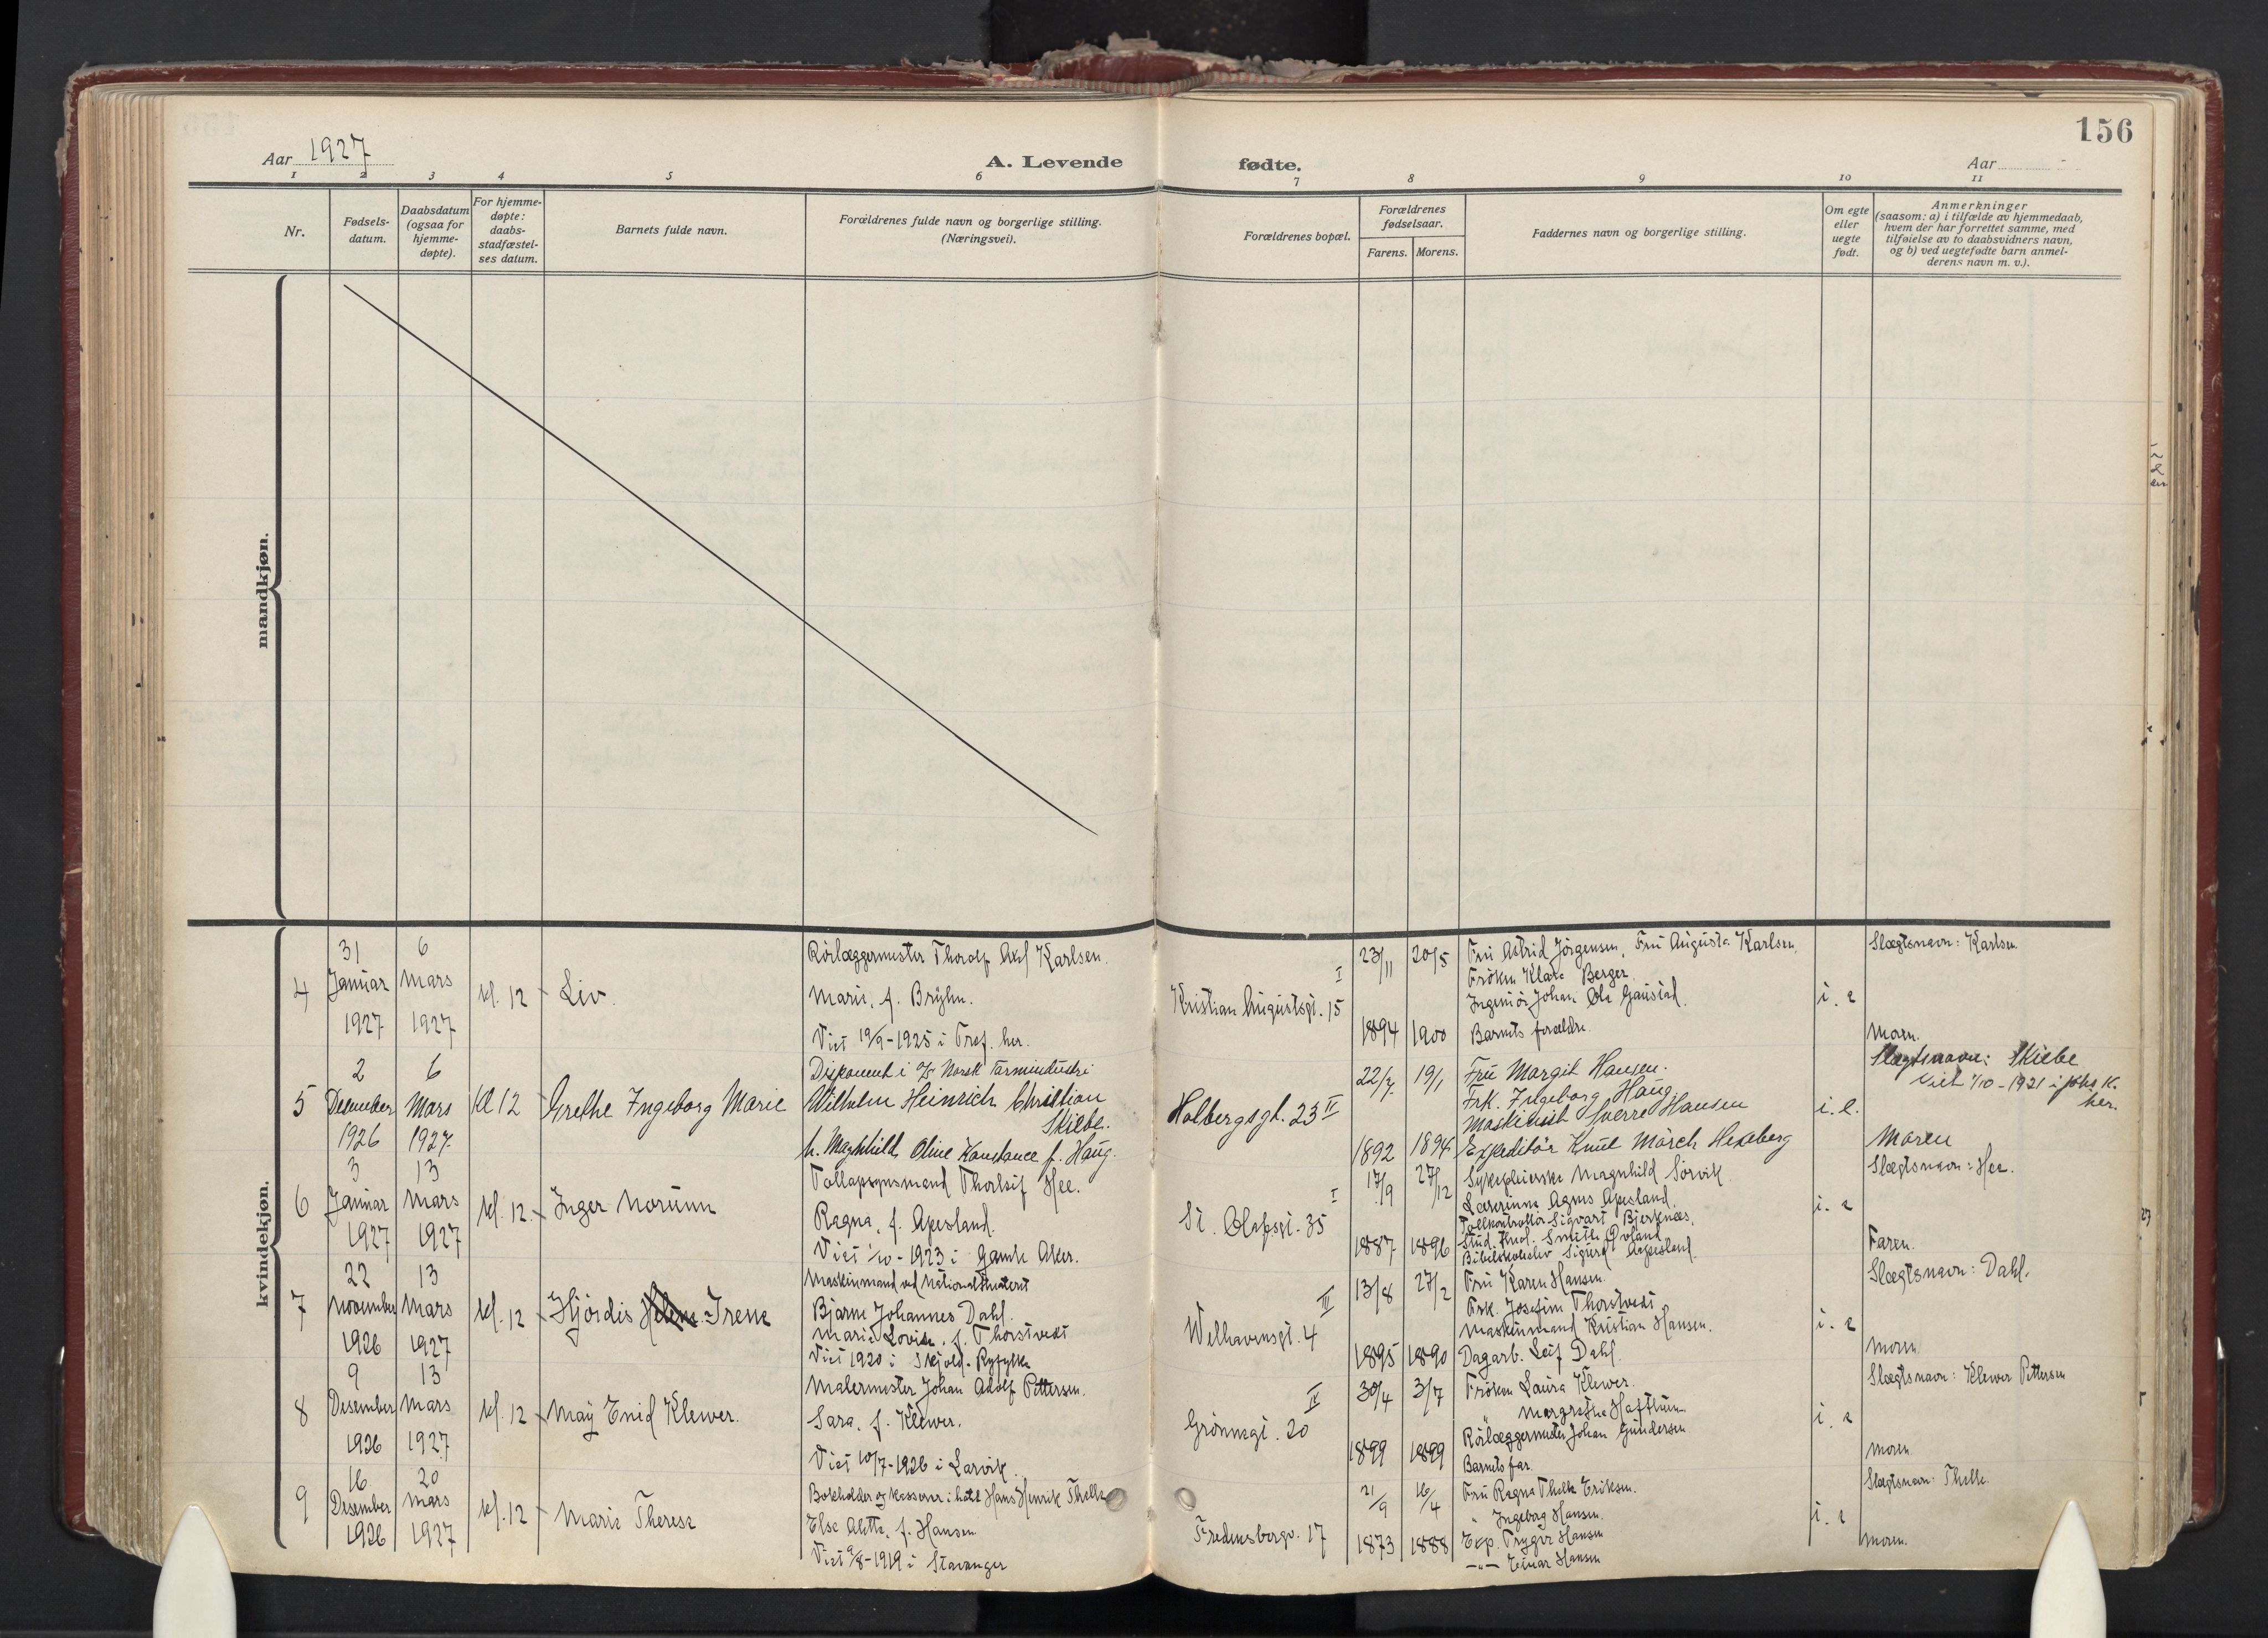 156
Aar 1927
A. Levende fødte.
Aar
1 2 3 4 5 6 7 8 9 10 11
Nr.
Fødsels-
datum.
Daabsdatum
(ogsaa for
hjemme-
døpte).
For hjemme-
døpte:
daabs-
stadfæstel-
ses datum.
Barnets fulde navn.
Forældrenes fulde navn og borgerlige stilling.
(Næringsvei).
Forældrenes bopæl.
Forældrenes
fødselsaar.
Farens. Morens.
Faddernes navn og borgerlige stilling.
Om egte
eller
uegte
født.
Anmerkninger
(saasom: a) i tilfælde av hjemmedaab,
hvem der har forrettet samme, med
tilføielse av to daabsvidners navn,
og b) ved uegtefødte barn anmel-
derens navn m. v.).
mandkjøn.
kvindekjøn.
4
31
Januar
1927
6
Mars
1927
kl. 12
Liv.
Rörlæggermester Thorolf Axel Karlsen.
Marie, f. Bryhn.
Viet 19/9-1925 i Tref. her.
I
Kristian Augustsgt. 15
23/11 20/5
1894 1900
Fru Astrid Jörgensen, Fru Augusta Karlsen,
Fröken Klara Berger.
Ingeniör Johan Ola Gaustad.
Barnets forældre.
i. e
Slægtsnavn: Karlsen
Moren.
5
2
December
1926
6
Mars
1927
Kl 12
Grethe Ingeborg Marie
Disponent i A/S Norsk Tarmindustri
Wilhelm Heinrich Christian
Skiebe.
h. Maghhild Oline Konstance f. Haug.
Holbergsgt. 23 II
22/7. 19/1
1892 1894
Fru Margit Hansen.
Frk. Ingeborg Haug.
Maskinist Sverre Hansen
Expeditör Knut Mörch Hexeberg
i. e.
Slægtsnavn: Skiebe
Viet 1/10-1921 i Johs K.
her.
Moren
6
3
Januar
1927
13
Mars
1927
kl. 12.
Inger Norunn
Tollopsynsmand Thorleif Hee.
Ragna, f. Apesland.
Viet 1/10-1923 i Gamle Aker.
I
St. Olafsgt. 35
17/9 27/12
1887 1896
Sykepleierske Magnhild Sörvik
Lærerinne Agnes Apesland.
Tollkontrollör Sigvart Bjerknæs.
Stud. theol. Smith Ovland
Bibelskoleelev Sigurd Apesland.
i. e
Slægtsnavn: Hee.
Faren.
7
22
November
1926
13
Mars
1927
kl. 12
Hjördis Irene
Maskinmand ved Nationaltheatret
Bjarne Johannes Dahl.
Marie Lovise, f. Thorstvedt
Viet 1920 i Skjold. Ryfylke
III
Welhavensgt. 4
13/8 27/2
1895 1890
Fru Karen Hansen.
Frk. Josefine Thorstvedt
Maskinmand Kristian Hansen.
Dagarb. Leif Dahl.
i. e
Slægtsnavn: Dahl.
Moren
8
9
Desember
1926
13
Mars
1927
kl. 12
May Enid Klewer.
Malermester Johan Adolf Pettersen.
Sara, f. Klewer.
Viet 10/7-1926 i Larvik.
IV
Grönnegt. 20
30/4 3/7
1899 1899
Fröken Laura Klewer.
" Margrethe
Rörlæggermester Johan Gundersen
Barnets far.
i. e
Slægtsnavn: Klewer Pettersen
Moren
9
16
Desember
1926
20
Mars
1927
kl. 12
Marie Therese
Bokholder og kasserer i hotel Hans Henrik Thelle
Else Alette, f. Hansen
Viet 9/8-1919 i Stavanger
Fredensborgv. 17
21/9 16/4
1873 1888
Fru Ragna Thelle Eriksen.
" Ingeborg Hansen.
Exp. Trygve Hansen
-"- Einar Hansen
i. e
Slægtsnavn: Thelle.
Moren.